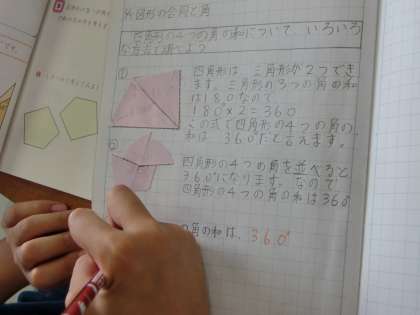 図形の合同と角
四角形の4つの角の和について、いろいろ
な方法で調べよう
①
四角形は、三角形が2つでき
ます。三角形の3つの角の和
は180なので
180×2=360
この式で四角形の4つの角の
和は、360°だと言えます。
②
四角形の4つの角を並べると
360°になります。なので
四角形の4つの角の和は360
角の和は、360°